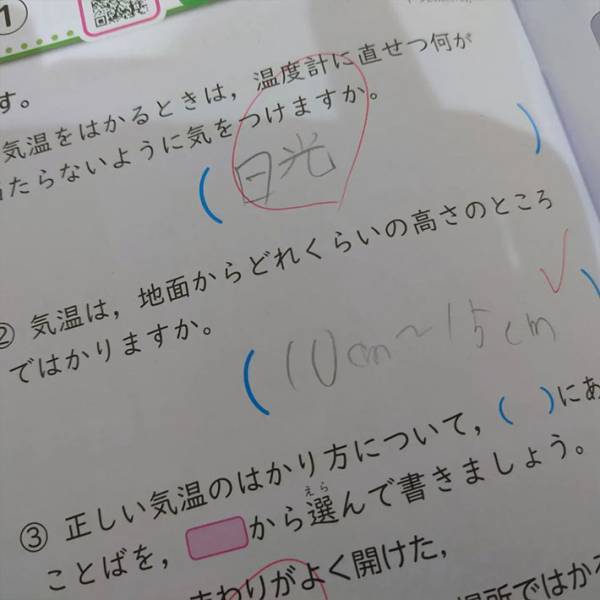 ①
す。
気温をはかるときは，温度計に直せつ何が
たらないように気をつけますか。
( 日光 )
② 気温は，地面からどれくらいの高さのところ
ではかりますか。
( 10cm～15cm )
③ 正しい気温のはかり方について，( )にあ
ことばを， から選んで書きましょう。
えら
まわりがよく開けた，
場所ではかる